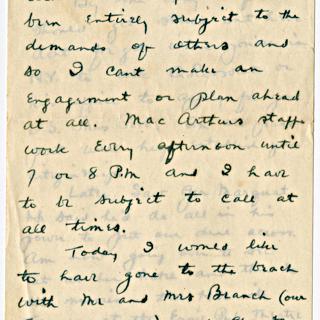 been Entirely subject to the
demands of others and
so I cant make an
Engagement or plan ahead
at all. Mac Arthurs staff
work Every afternoon until
7 or 8 P.M and I have
to be subject to call at
all times.
Today I would like
to have gone to the beach
with Mr and Mrs Branch (our